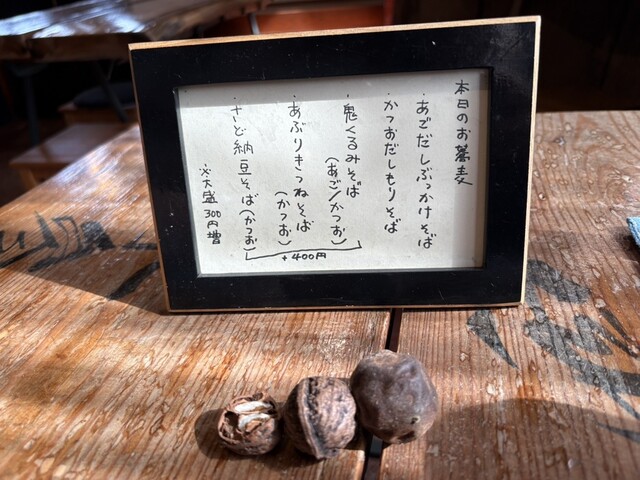 本日のお蕎麦
・あごだしぶっかけそば
・かつおだしもりそば
・鬼くるみそば
(あご/かつお)
・あぶりきつねそば
(かつお)
・さど納豆そば(かつお)
+400円
※大盛300円増